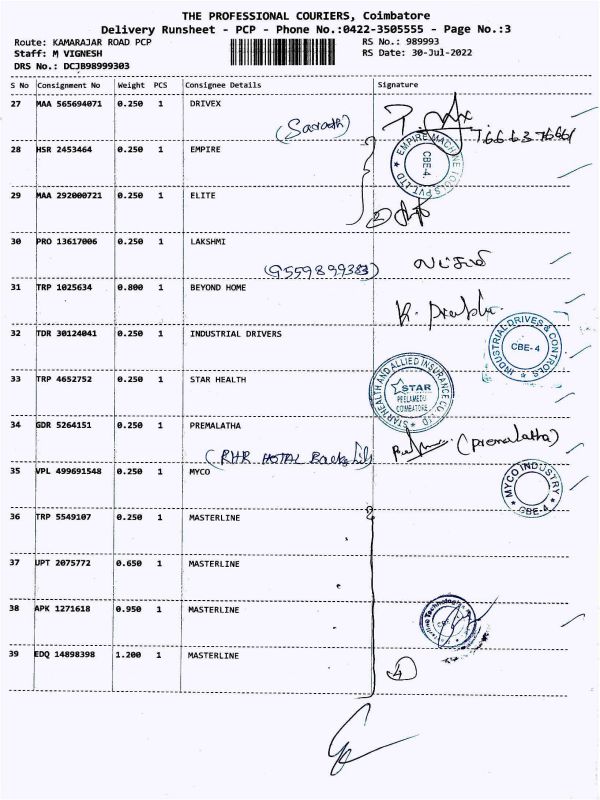 THE PROFESSIONAL COURIERS, Coimbatore
Delivery Runsheet - PCP - Phone No.:0422-3505555 - Page No.:3
Route: KAMARAJAR ROAD PCP RS No.: 989993
Staff: M VIGNESH RS Date: 30-Jul-2022
DRS No.: DCJB98999303
S No Consignment No Weight PCS Consignee Details Signature
27 MAA 565694071 0.250 1 DRIVEX
28 HSR 2453464 0.250 1 EMPIRE
EMPIRE MACHINE TOOLS PVT.LTD CBE-4.
29 MAA 292000721 0.250 1 ELITE
2
30 PRO 13617006 0.250 1 LAKSHMI
(9559899383) லட்சுமி
31 TRP 1025634 0.800 1 BEYOND HOME
K. Prabhu
32 TDR 30124041 0.250 1 INDUSTRIAL DRIVERS
INDUSTRIAL DRIVES & CONTROLS CBE-4
33 TRP 4652752 0.250 1 STAR HEALTH
STAR HEALTH AND ALLIED INSURANCE CO. LTD STAR PEELAMEDU COIMBATORE
34 GDR 5264151 0.250 1 PREMALATHA
(Premalatha)
35 VPL 499691548 0.250 1 MYCO
MYCO INDUSTRY CBE-4
36 TRP 5549107 0.250 1 MASTERLINE
37 UPT 2075772 0.650 1 MASTERLINE
38 APK 1271618 0.950 1 MASTERLINE
39 EDQ 14898398 1.200 1 MASTERLINE
4